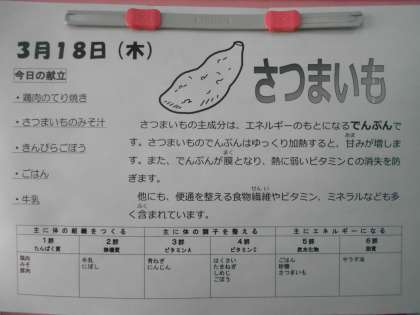 3月18日（木）
今日の献立
・鶏肉のてり焼き
・さつまいものみそ汁
・きんぴらごぼう
・ごはん
・牛乳
さつまいも
さつまいもの主成分は、エネルギーのもとになるでんぷんで
す。さつまいものでんぷんはゆっくり加熱すると、甘みが増しま
す。また、でんぷんが膜となり、熱に弱いビタミンCの消失を防
ぎます。
他にも、便通を整える食物繊維やビタミン、ミネラルなども多
く含まれています。
主に体の組織をつくる 主に体の調子を整える 主にエネルギーになる
1群 2群 3群 4群 5群 6群
たんぱく質 無機質 ビタミンA ビタミンC 炭水化物 脂質
鶏肉 牛乳 青ねぎ はくさい ごはん サラダ油
みそ にぼし にんじん たまねぎ 砂糖
豚肉 しめじ さつまいも
ごぼう